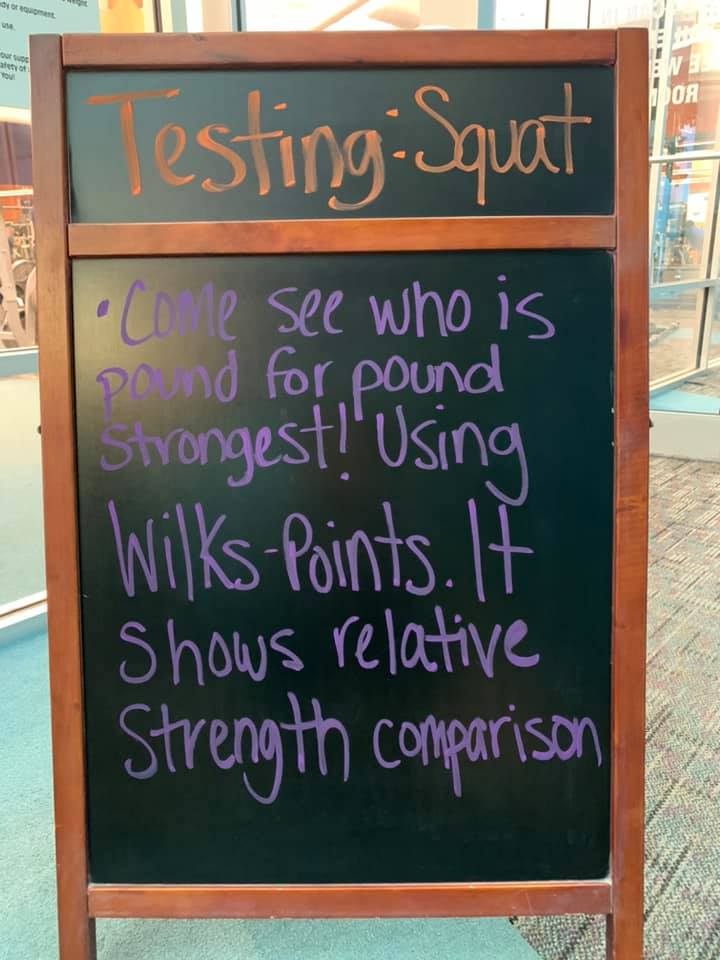 dy or equipment.
use.
You!
Testing: Squat
• Come see who is
pound for pound
strongest! Using
Wilks-Points. It
shows relative
Strength comparison